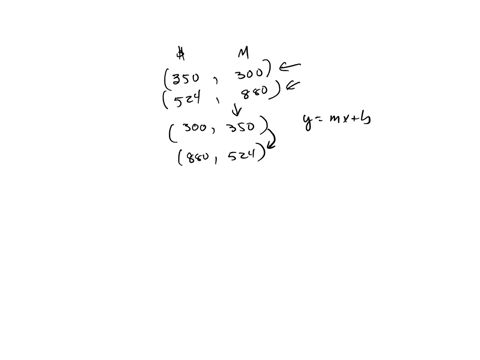 $ M
(350, 300) ←
(524, 880) ←
↓
(300, 350) y = mx + b
(880, 524)